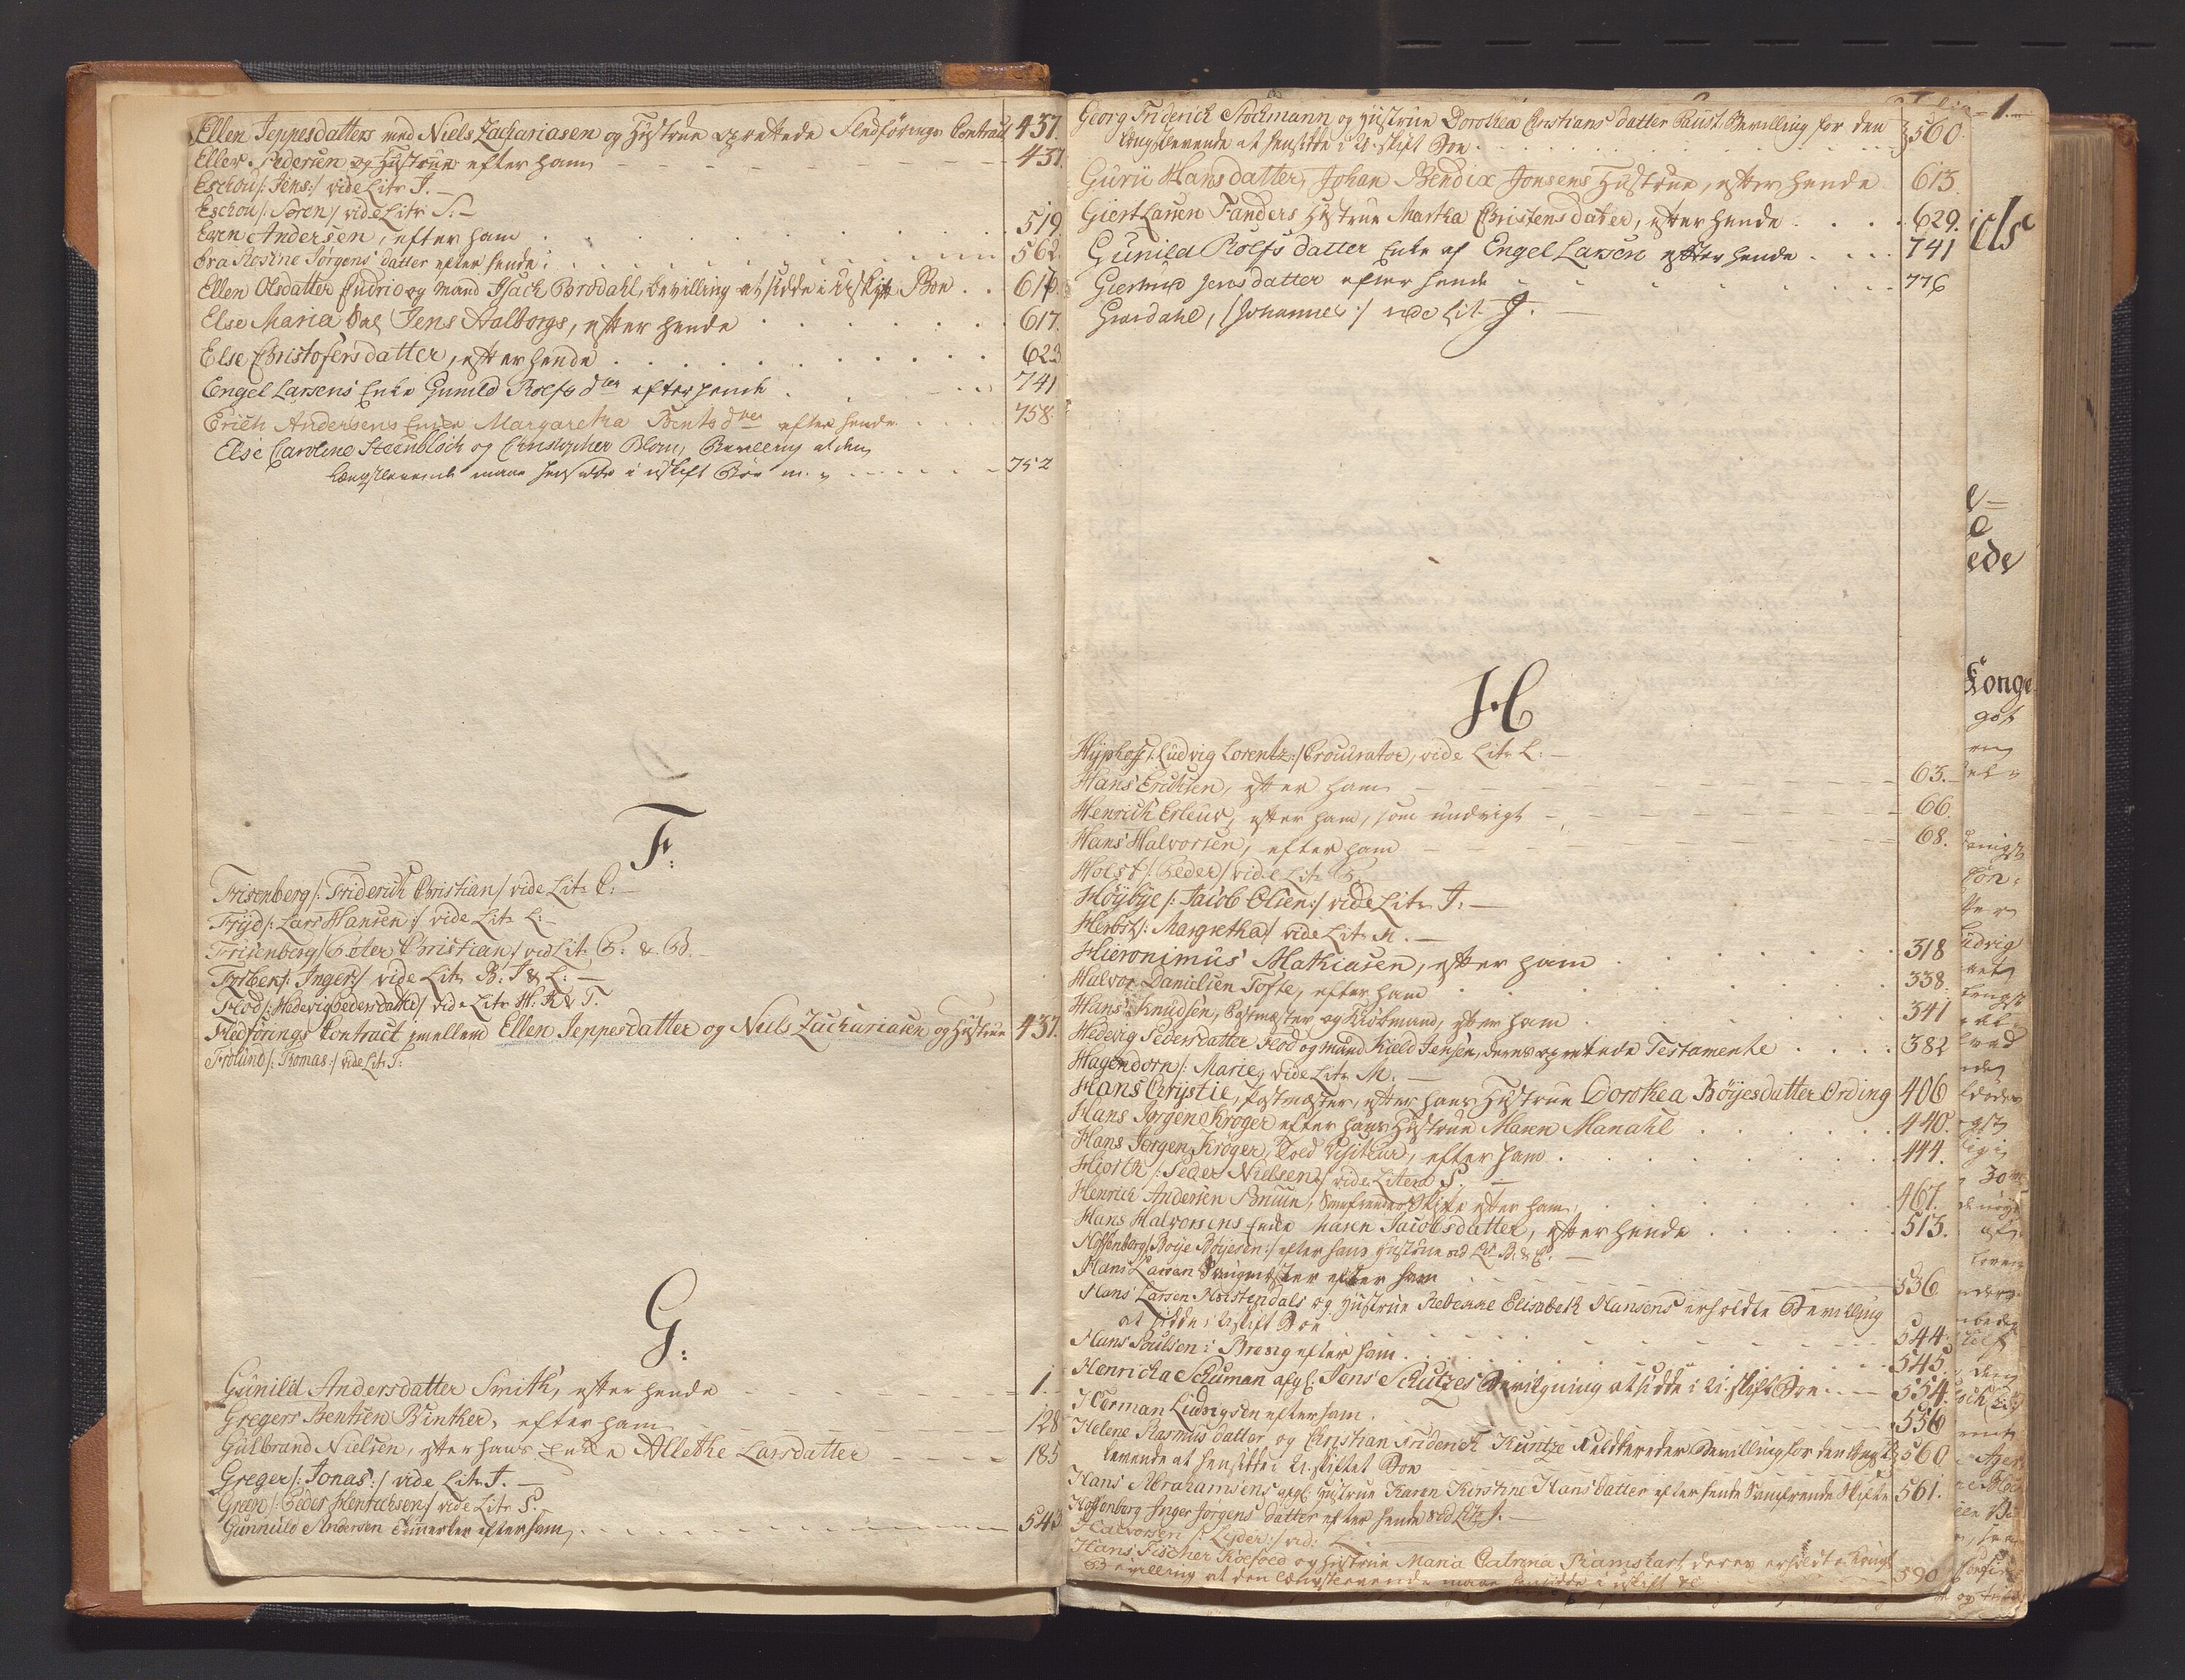 Ellen Jeppesdatters med Niels Zachariasen og Hüstrue oprettede Fledførings Contract 437.
Eller Pedersen og Hüstrue efter ham 437
Eschou /: Jens :/ vide Litr J. —
Eschou /: Søren / vide Litr S. —
Even Andersen, efter ham 519.
Eva Rosine Jørgens datter efter hende 562.
Ellen Olsdatter og Mand Isach Brodahl, bevilling at sidde i uskift Boe 616.
Else Maria Sal Jens Aalborgs, efter hende 617.
Else Christofersdatter, efter hende 623
Engel Larsens Enke Gunild Roelfs dter efter hende 741
Erich Andersens Enke Margaretha Bents dter efter hende 758.
Else Caroline Steenbloch og Christopher Blom, Bevilling at den
Længstlevende maae hensidde i uskift Boe m. v. 752
F:
Frisenberg /: Friderich Christian / vide Litr C. —
Fryd /: Lars Hansen :/ vide Litr L: —
Frisenberg / Peter Christian / vid Lit. P: & B. —
Forben /: Inger / vide Litr B: J & L: —
Flod /: Hedevig Pedersdatter / vide Litr H. K & T.
Fledførings Contract imellem Ellen Jeppesdatter og Niels Zachariasen og Hüstrue 437.
Frølund /: Thomas :/ vide Litr T:
G:
Gunild Andersdatter Smith, efter hende 1.
Gregers Bentsen Winther, efter ham 128
Gulbrand Nielsen, efter hans Enke Allethe Larsdatter 185
Greger /: Jonas :/ vide Litr J. —
Green /: Peder Henrichsen / vide Litr P. —
Gunnuld Andersen Tømmerker efter ham, 543
Georg Friderich Stockmann og Hüstrue Dorothea Christians datter Paust. Bevilling for den
Længstlevende at hensidde i U. skift Boe 560.
Gurii Hans datter, Johan Bendix Jonsens Hüstrue, efter hende 613.
Giert Larsen Fanders Hüstrue Martha Christensdatter, efter hende 629.
Gunild Rolfs datter Enke af Engel Larsen efter hende 741
Giertrud Jens datter efter hende 776
Grardahl, / Johannes :/ vide Lit. J. —
H
Hyphoff /: Ludvig Lorentz :/ Procurator, vide Litr L: —
Hans Erichsen, efter ham 63.
Henrich Erleus, efter ham, som undvigt 66.
Hans Halvorsen, efter ham 68.
Holst /: Peder / vide Litr P.
Høybye /: Jacob Olsen :/ vide Litr J. —
Herbst /: Margretha / vide Litr M. —
Hieronimus Mathiasen, efter ham 318
Halvor Danielsen Tofte, efter ham 338.
Hans Knudsen, Postmester og Kiøbmand, efter ham 341
Hedevig Pedersdatter Flod og Mand Kield Jensen, deres oprettede Testamente 382
Hagendorn /: Marie, vide Litr M. —
Hans Chrystie, Postmester, efter hans Hüstrue Dorothea Bøyesdatter Ording 406
Hans Jørgen Krøger efter hans Hüstrue Maren Manahl 440.
Hans Jørgen Krøger, Told Visiteur, efter ham 444.
Hiorth /: Peder Nielsen / vide Litera P. —
Henrich Andersen Bruun, Samfrænde Skifte efter ham, 467.
Hans Halvorsens Enke Maren Jacobsdatter, efter hende 513.
Hoffenberg / Boye Bøyesen :/ efter hans Hustrue vid Litr B. & C. —
Hans Larsen Saugmester efter ham 536
Hans Larsen Kristendals og Hustrue Rebekke Elisabeth Hansens erholdte Bevilling
at sidde i Uskift Boe 544
Hans Poulsen i Breng efter ham 545
Henricha Schuman afgl: Jens Schutzes Bevilgning at sidde i U. skift Boe 554
Herman Ludvigsen efter ham. 556
Helene Rasmus datter og Christian Friderich Kuntze Feldbereder Bevilling for den længst
levende at hensidde i U. skiftet Boe 560
Hans Abrahamsens afgl: Hustrue Karen Kirstine Hans datter efter hende Samfrende Skifte 561.
Hoffenberg Inger Jørgens datter efter hende vid Litr J. —
Halvorsen /: Lyder :/ vid: L: —
Hans Fischer Koefoed og Hustrue Maria Catrina Ramshart deres erholdte Kongl
Bevilling at den Længstlevende maae hensidde i uskift Boe 590
1.
els
ede
Konge
got
Ludvig